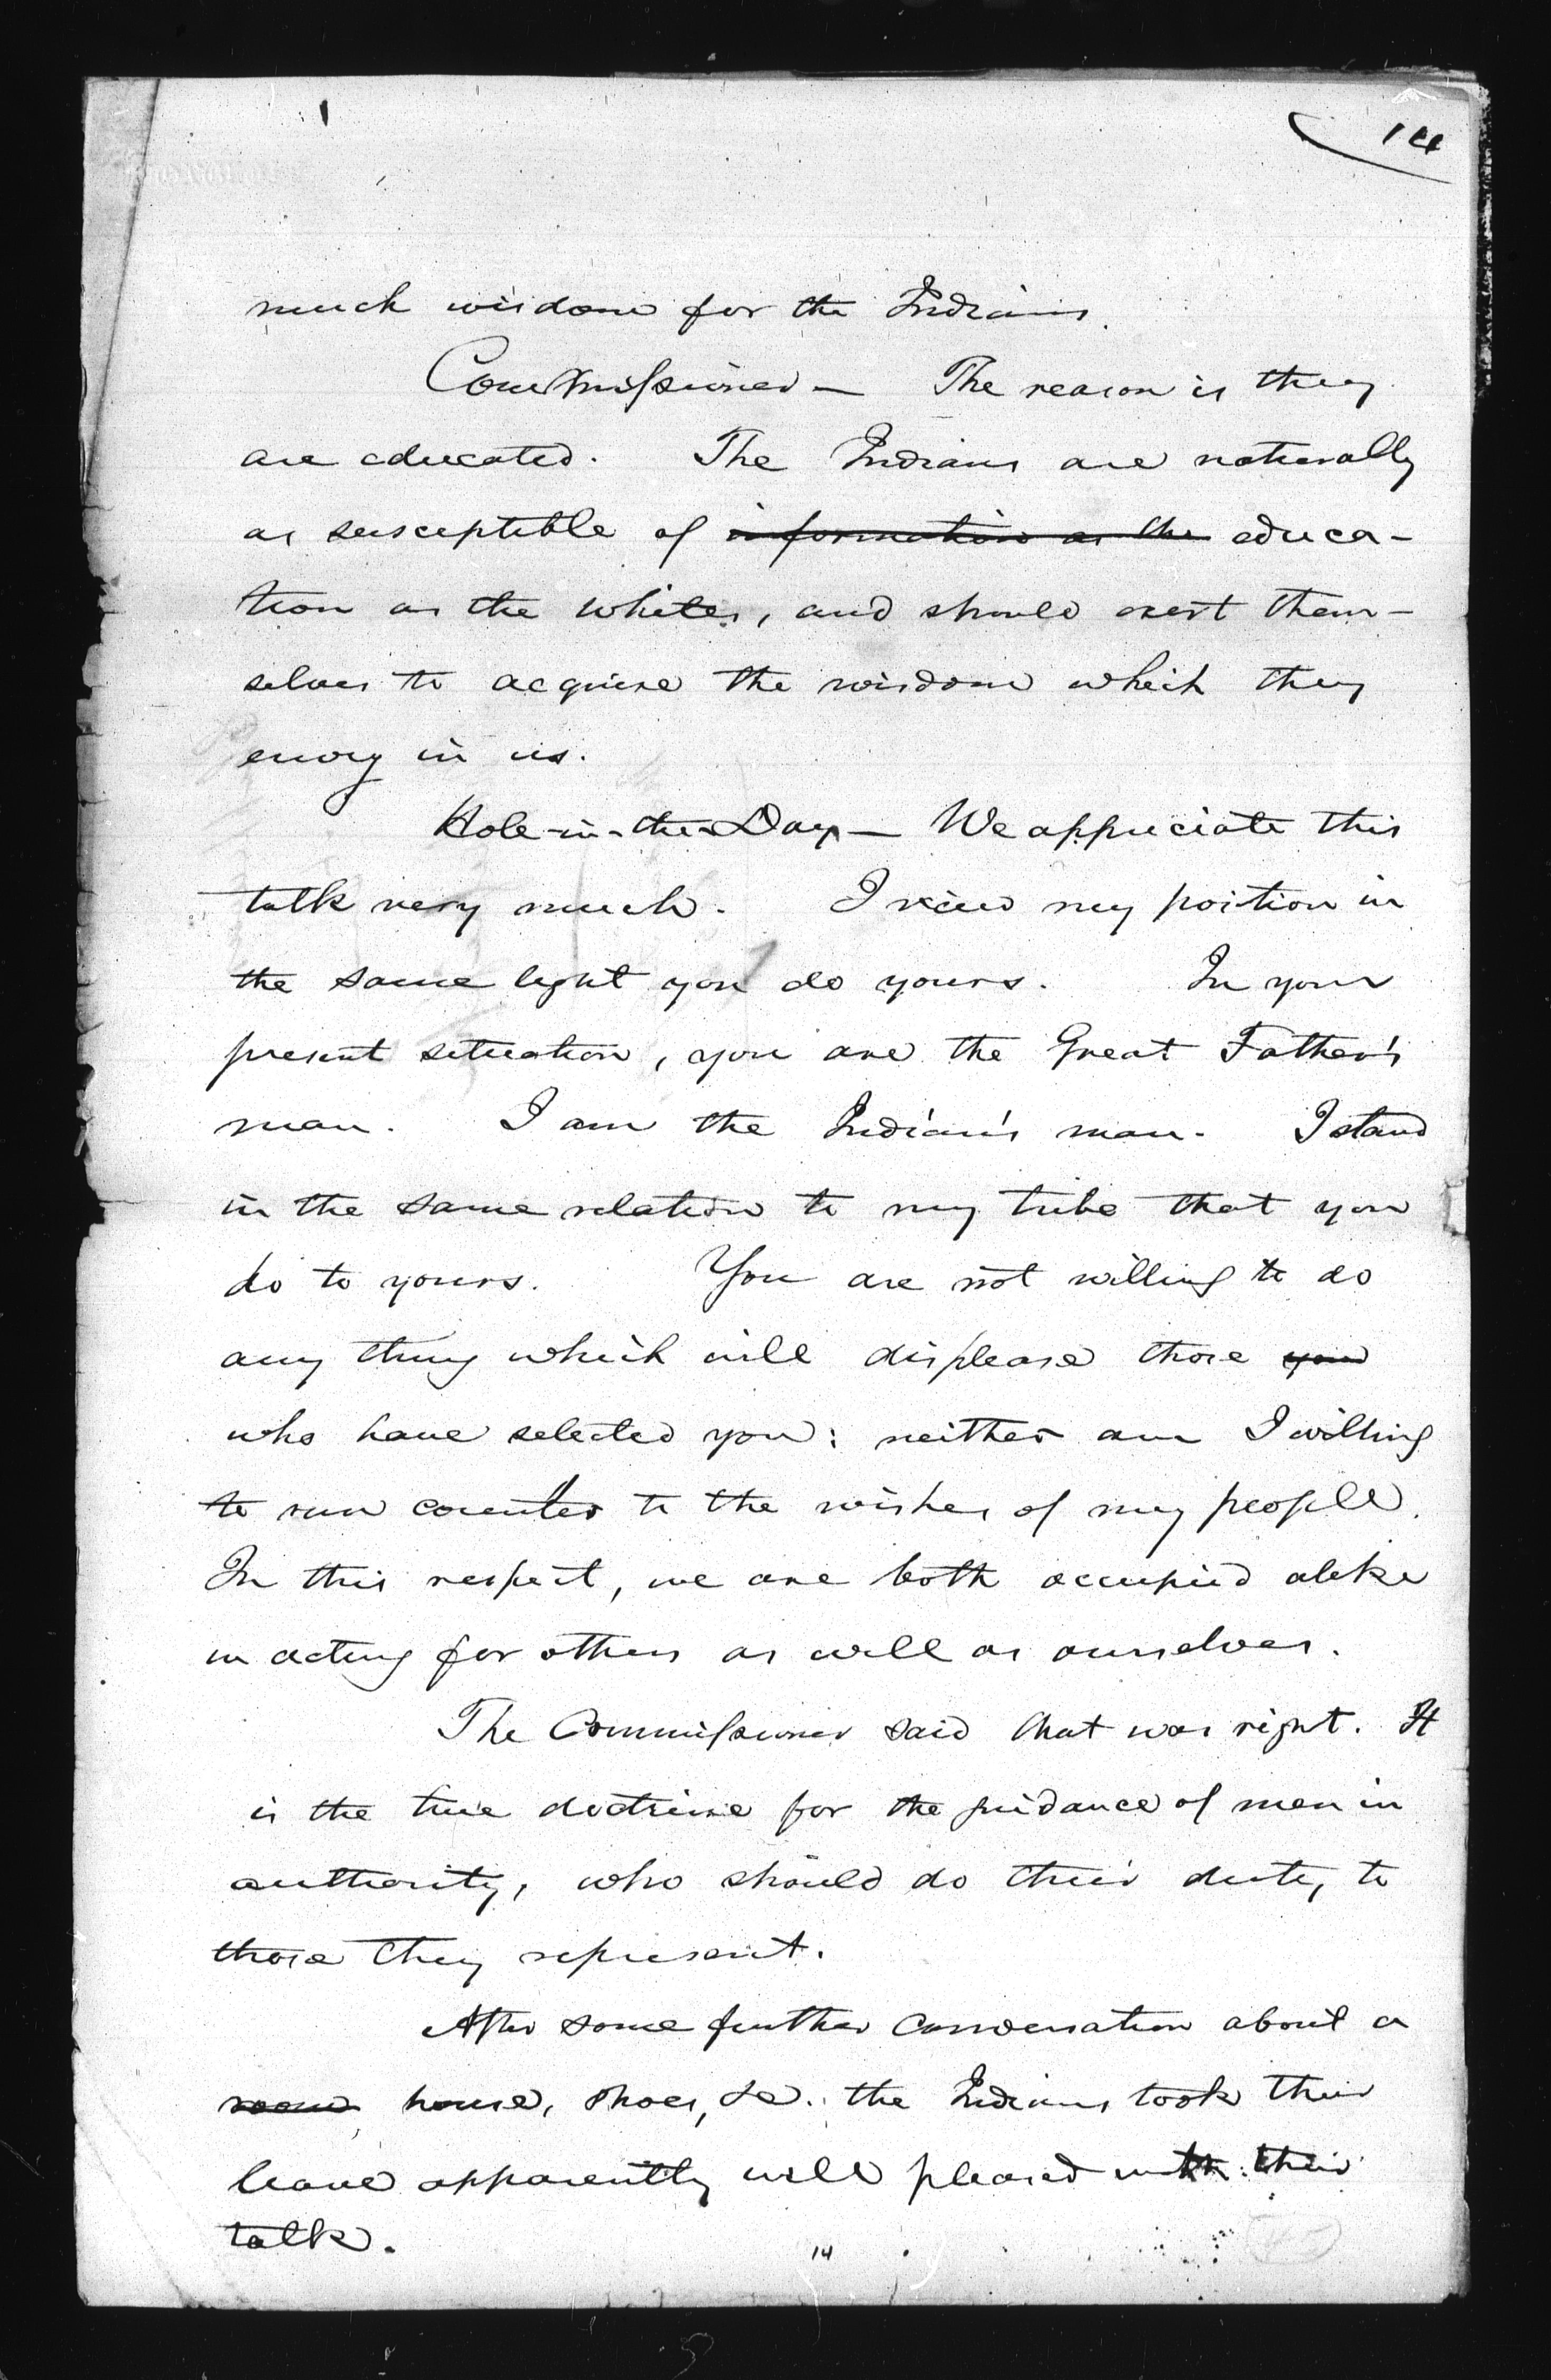 14
much wisdom for the Indians.
Commissioner — The reason is they
are educated. The Indians are naturally
as susceptible of information as the educa-
tion as the whites, and should exert them-
selves to acquire the wisdom which they
envy in us.
Hole-in-the-Day — We appreciate this
talk very much. I view my position in
the same light you do yours. In your
present situation, you are the Great Father's
man. I am the Indian's man. I stand
in the same relation to my tribe that you
do to yours. You are not willing to do
any thing which will displease those you
who have selected you: neither am I willing
to run counter to the wishes of my people.
In this respect, we are both occupied alike
in acting for others as well as ourselves.
The Commissioner said that was right. It
is the true doctrine for the guidance of men in
authority, who should do their duty to
those they represent.
After some further conversation about a
room house, shoes, &c. the Indians took their
leave apparently well pleased with their
talk.
14